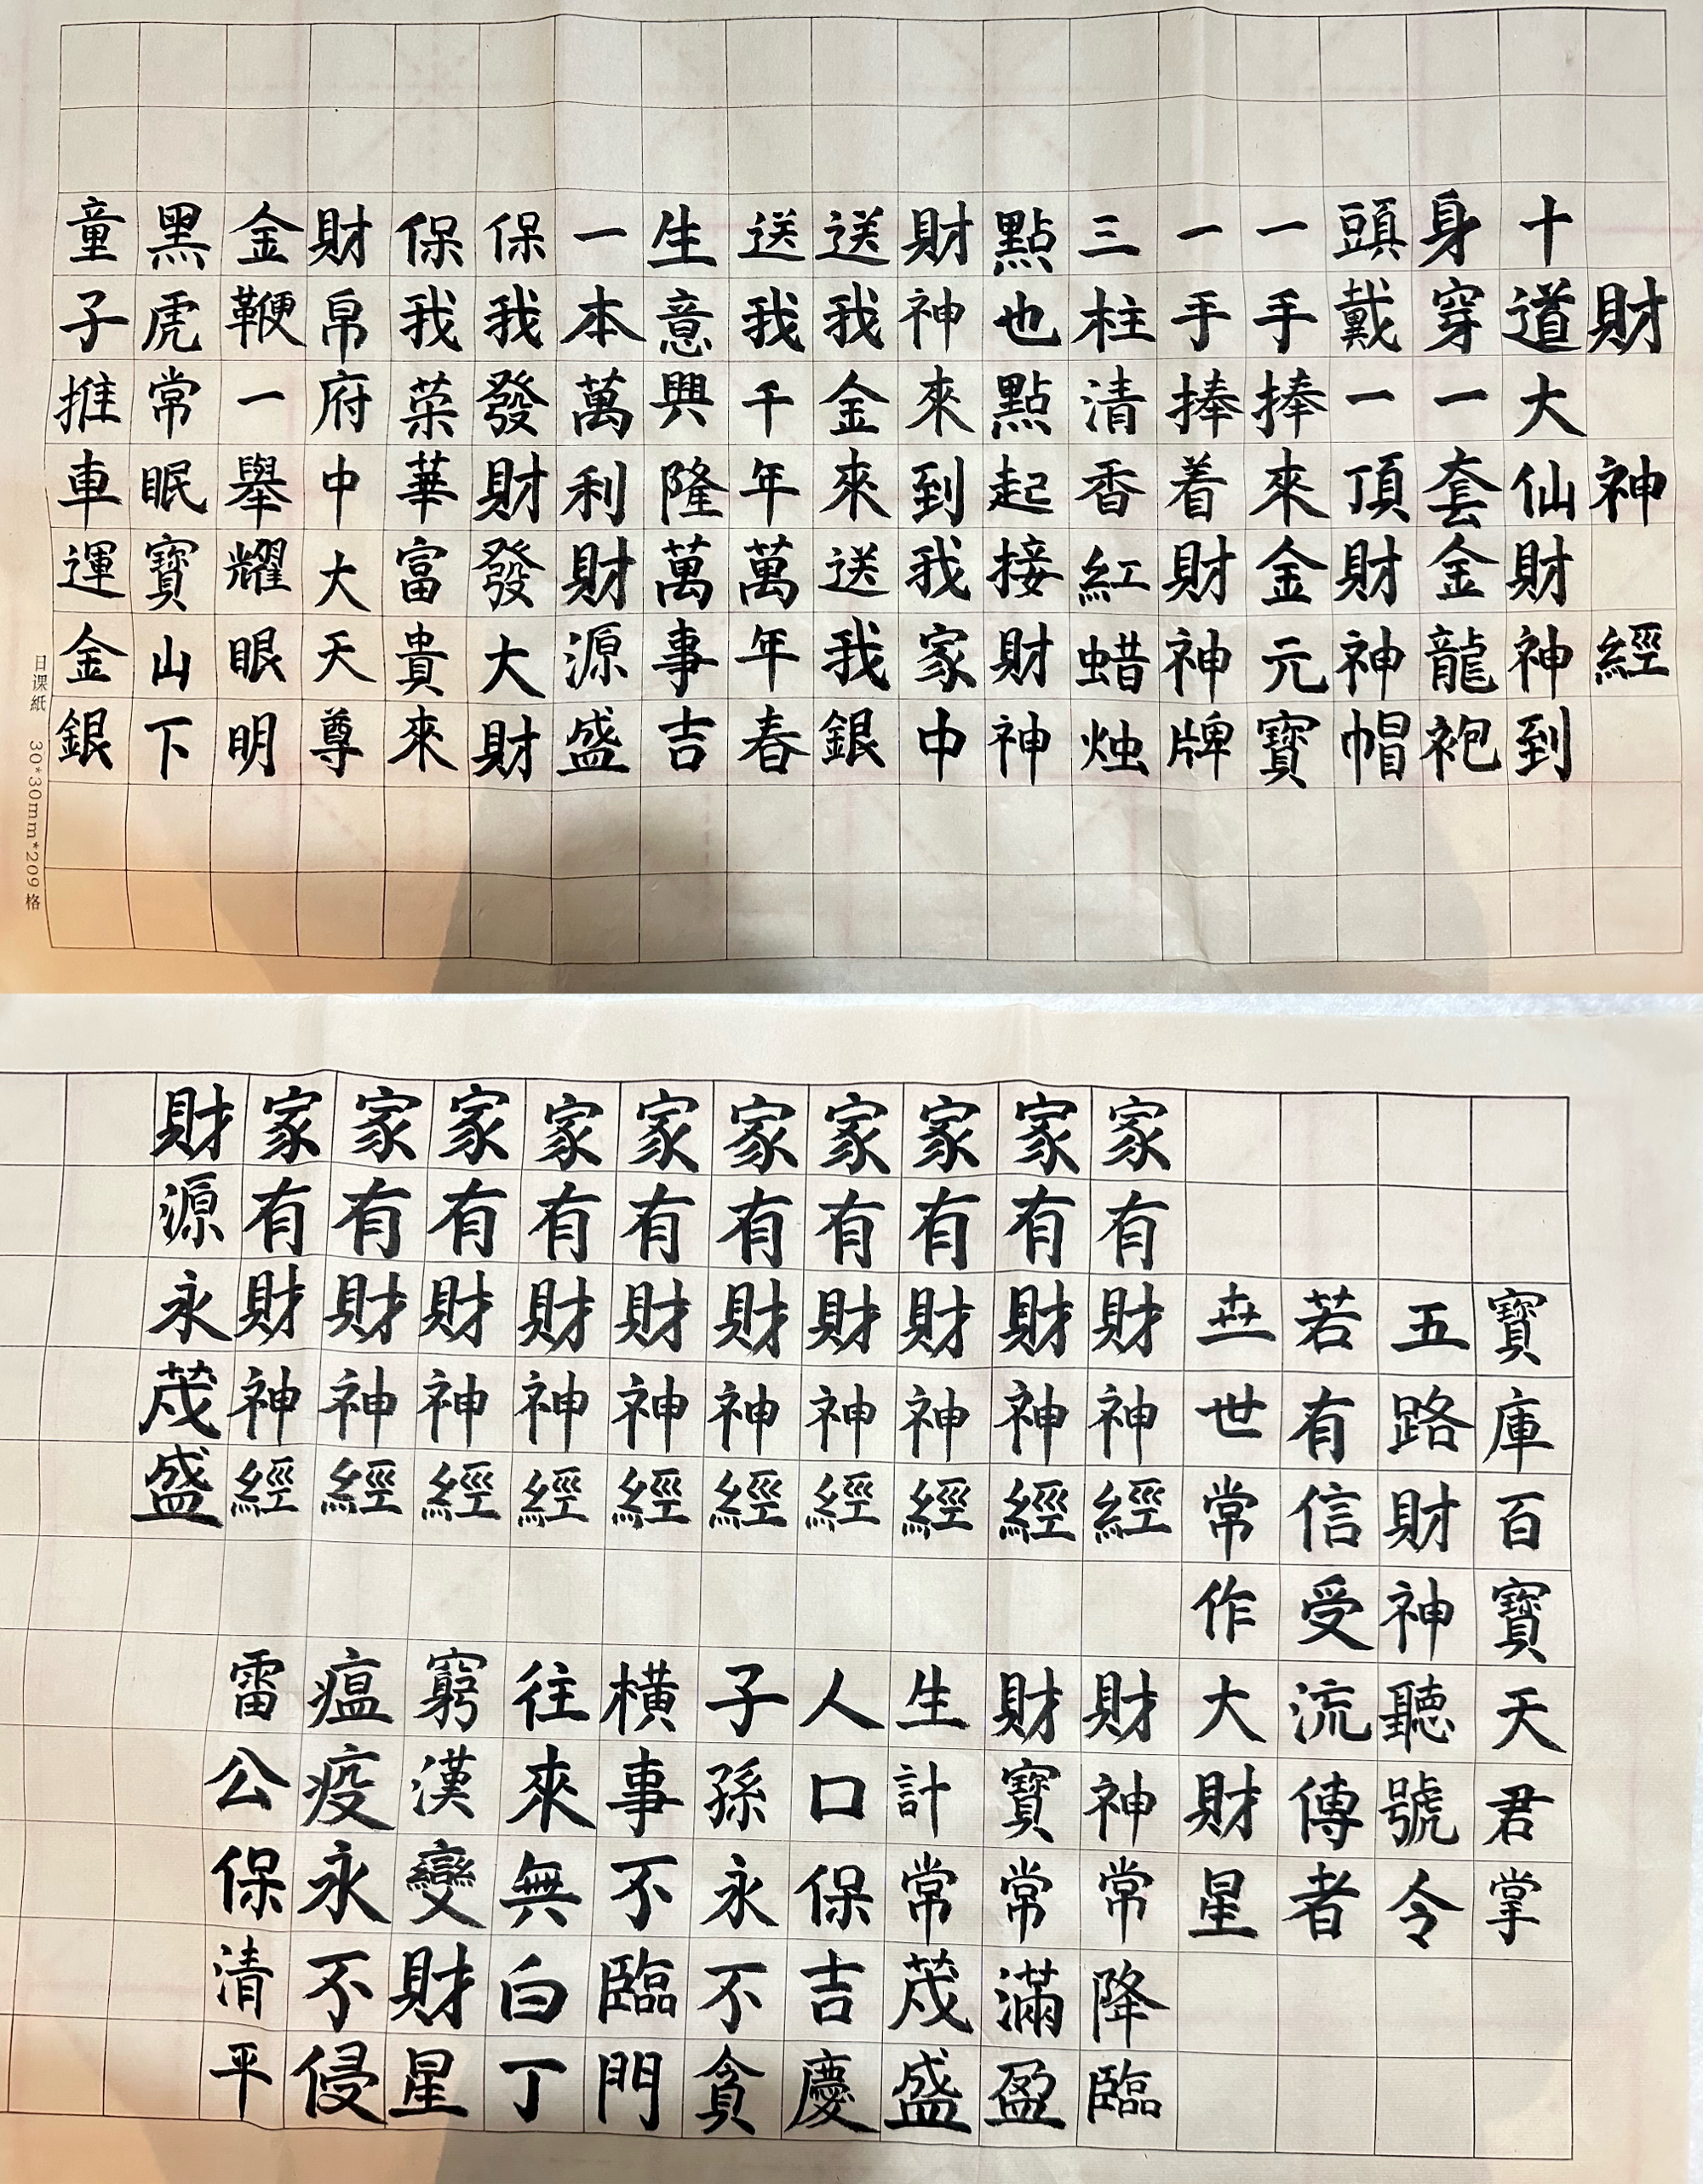 財神經
十道大仙財神到
身穿一套金龍袍
頭戴一頂財神帽
一手捧來金元寶
一手捧着財神牌
三柱清香紅蜡烛
點也點起接財神
財神來到我家中
送我金來送我銀
送我千年萬年春
生意興隆萬事吉
一本萬利財源盛
保我發財發大財
保我菜華富貴來
財帛府中大天尊
金鞭一舉耀眼明
黑虎常眠寶山下
童子推車運金銀
日课紙 30*30mm*209格
寶庫百寶天君掌
五路財神聽號令
若有信受流傳者
卋世常作大財星
家有財神經 財神常降臨
家有財神經 財寶常滿盈
家有財神經 生計常茂盛
家有財神經 人口保吉慶
家有財神經 子孫永不貪
家有財神經 橫事不臨門
家有財神經 往來無白丁
家有財神經 窮漢變財星
家有財神經 瘟疫永不侵
家有財神經 雷公保清平
財源永茂盛